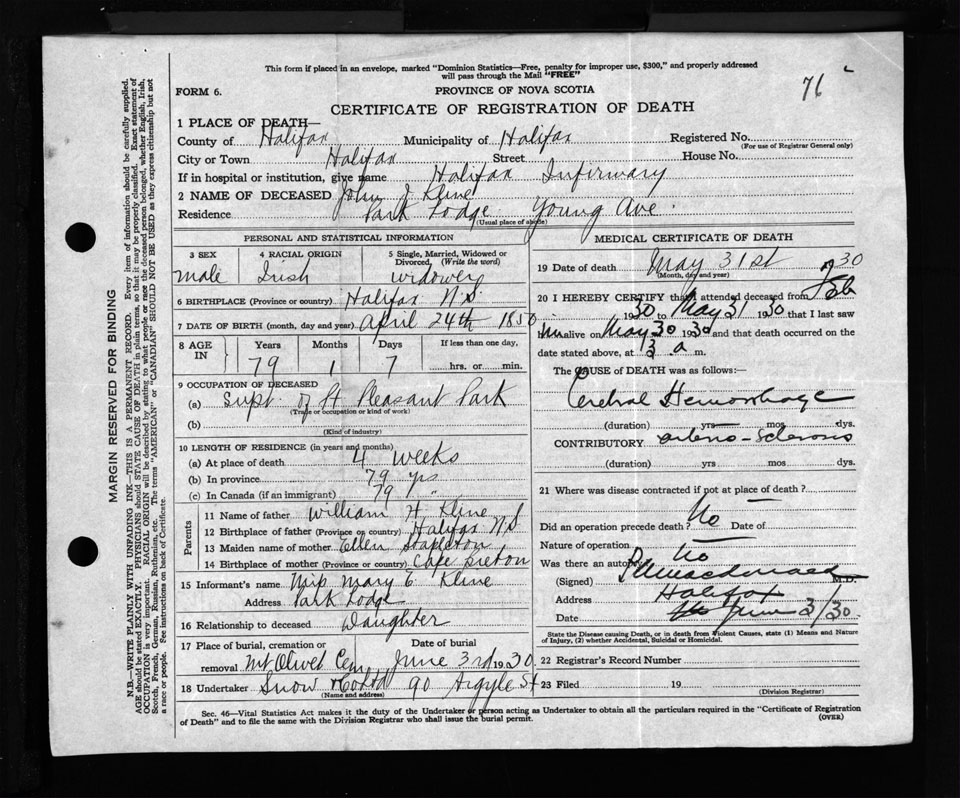 This form if placed in an envelope, marked "Dominion Statistics—Free, penalty for improper use, $300," and properly addressed
will pass through the Mail "FREE"
71
FORM 6.
PROVINCE OF NOVA SCOTIA
CERTIFICATE OF REGISTRATION OF DEATH
1 PLACE OF DEATH—
County of Halifax Municipality of Halifax Registered No.
(For use of Registrar General only)
City or Town Halifax Street House No.
If in hospital or institution, give name Halifax Infirmary
2 NAME OF DECEASED John J Kline
Residence Park Lodge Young Ave.
(Usual place of abode)
PERSONAL AND STATISTICAL INFORMATION
3 SEX 4 RACIAL ORIGIN 5 Single, Married, Widowed or
Divorced, (Write the word)
male Irish widower
6 BIRTHPLACE (Province or country) Halifax N.S.
7 DATE OF BIRTH (month, day and year) April 24th 1850
8 AGE IN Years Months Days If less than one day,
79 1 7 hrs. or min.
9 OCCUPATION OF DECEASED
(a) Supt. of Pt Pleasant Park
(Trade or occupation or kind of work)
(b)
(Kind of industry)
10 LENGTH OF RESIDENCE (in years and months)
(a) At place of death 4 weeks
(b) In province 79 yrs
(c) In Canada (if an immigrant) 79 "
Parents
11 Name of father William H. Kline
12 Birthplace of father (Province or country) Halifax N.S
13 Maiden name of mother Ellen Stapleton
14 Birthplace of mother (Province or country) Cape Breton
15 Informant's name Miss Mary C. Kline
Address Park Lodge
16 Relationship to deceased Daughter
17 Place of burial, cremation or Date of burial
removal Mt Olivet Cem June 3rd 1930
18 Undertaker Snow & Co Ltd 90 Argyle St
(Name and address)
MEDICAL CERTIFICATE OF DEATH
19 Date of death May 31st 1930
(Month, day and year)
20 I HEREBY CERTIFY that I attended deceased from Feb
1930 to May 31 1930 that I last saw
him alive on May 30 1930 and that death occurred on
date stated above, at a m.
The CAUSE OF DEATH was as follows:—
Cerebral Hemorrhage
(duration) yrs mos dys.
CONTRIBUTORY arterio-Sclerosis
(duration) yrs mos. dys.
21 Where was disease contracted if not at place of death?
Did an operation precede death? No Date of
Nature of operation
Was there an autopsy No
(Signed) M.D.
Address Halifax
Date June 3/30
State the Disease causing Death, or in death from Violent Causes, state (1) Means and Nature
of Injury, (2) whether Accidental, Suicidal or Homicidal.
22 Registrar's Record Number
23 Filed 19
(Division Registrar)
Sec. 46—Vital Statistics Act makes it the duty of the Undertaker or person acting as Undertaker to obtain all the particulars required in the "Certificate of Registration
of Death" and to file the same with the Division Registrar who shall issue the burial permit.
(OVER)
MARGIN RESERVED FOR BINDING
N.B.—WRITE PLAINLY WITH UNFADING INK—THIS IS A PERMANENT RECORD. Every item of information should be carefully supplied.
AGE should be stated EXACTLY. PHYSICIANS should STATE CAUSE OF DEATH in plain terms, so that it may be properly classified. Exact statement of
OCCUPATION is very important. RACIAL ORIGIN will be described by stating to what people or race the deceased person belonged, whether English, Irish,
Scotch, French, German, Russian, Ruthenian, etc. The terms "AMERICAN" or "CANADIAN" SHOULD NOT BE USED as they express citizenship but not
a race or people. See instructions on back of Certificate.